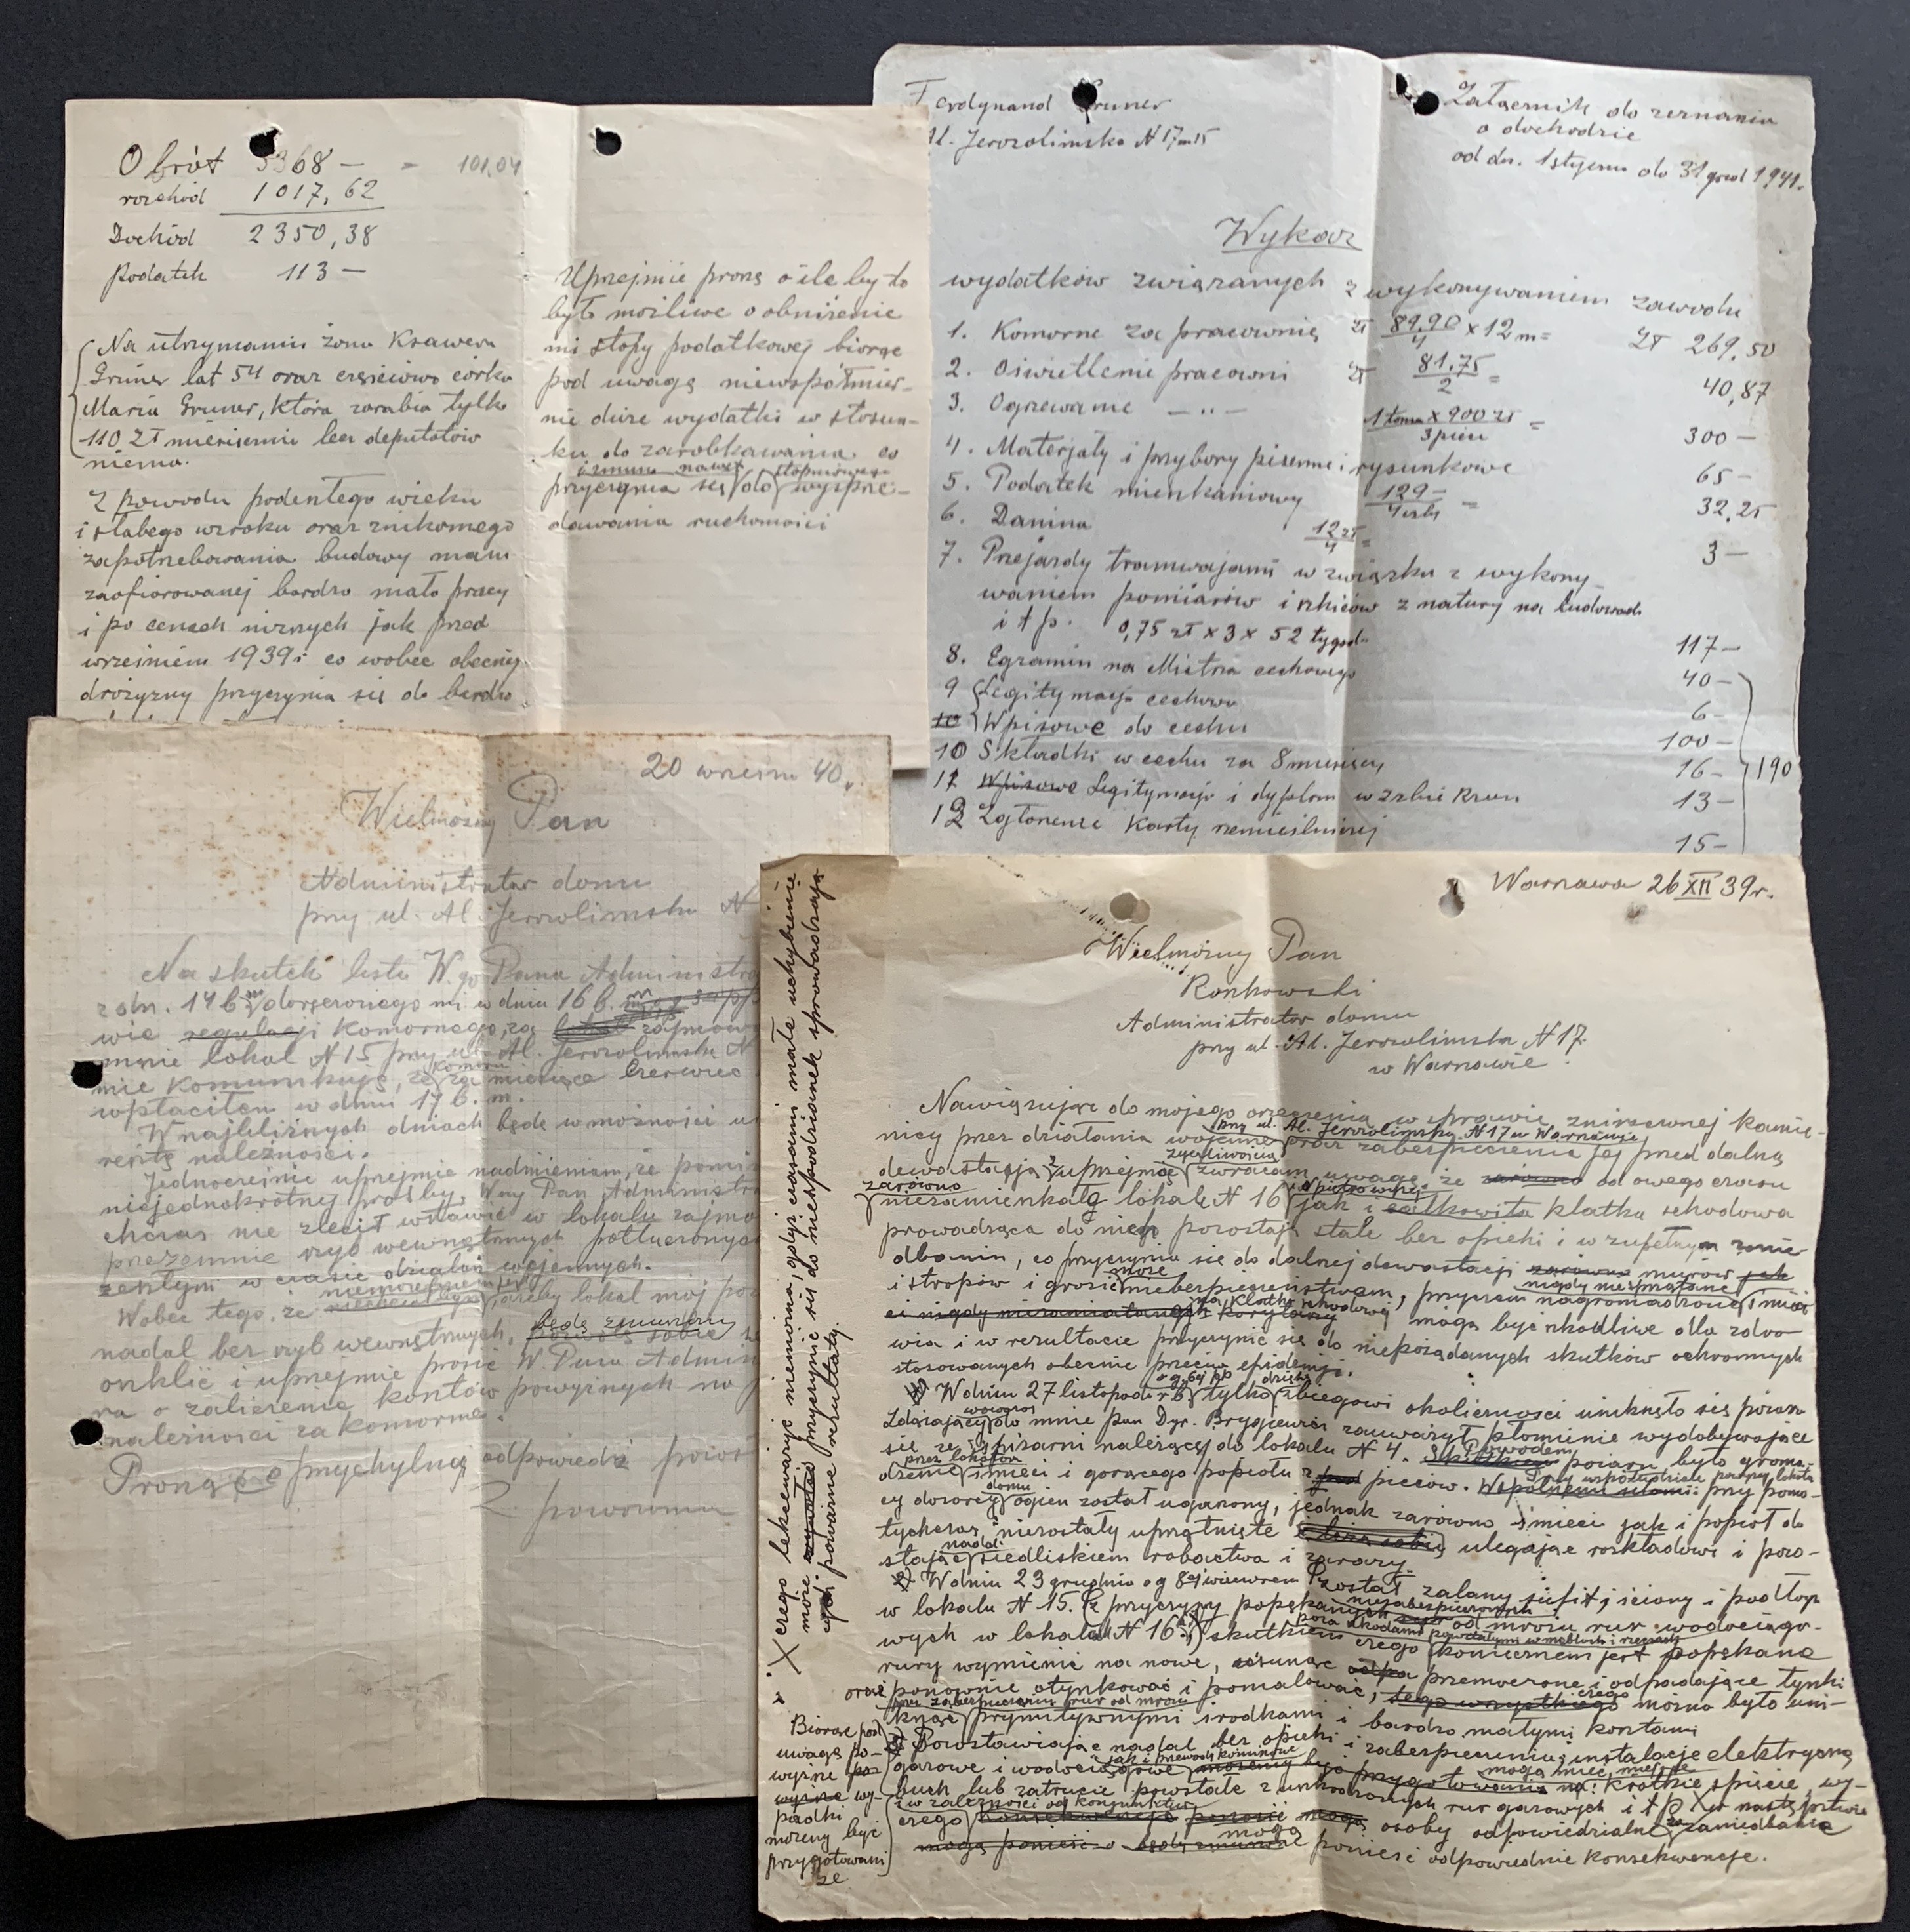 Obrót 3368 — = 101,04
rozchód 1017,62
Dochód 2350,38
Podatek 113 —
Na utrzymaniu żona Ksawera
Gruner lat 54 oraz częściowo córka
Maria Gruner, która zarabia tylko
110 zł miesięcznie lecz deputatów
niema.
Z powodu podeszłego wieku
i słabego wzroku oraz znikomego
zapotrzebowania budowy mam
zaofiarowanej bardzo mało pracy
i po cenach niznych jak przed
wrześniem 1939 r co wobec obecnej
drożyzny przyczynia się do bardzo
Uprzejmie proszę o ile by to
było możliwe o obniżenie
mi stopy podatkowej biorąc
pod uwagę niewspółmier-
nie duże wydatki w stosun-
ku do zarobkowania co
i zmusza nawet stopniowego
przyczynia się do wyprze-
dawania ruchomości
Ferdynand Gruner
Al. Jerozolimska N 17 m 15
Załącznik do zeznania
o dochodzie
od dn. 1 stycznia do 31 grud 1941.
Wykaz
wydatków związanych z wykonywaniem zawodu
1. Komorne za pracownię zł 89.90/4 x 12 m = zł 269,50
2. Oświetlenie pracowni zł 81.75/2 = 40,87
3. Ogrzewanie — „ — 1 tona x 900 zł/3 piece = 300 —
4. Materjały i przybory piśmienne i rysunkowe 65 —
5. Podatek mieszkaniowy 129 —/4 izby = 32,25
6. Danina 12 zł/4 = 3 —
7. Przejazdy tramwajami w związku z wykony-
waniem pomiarów i szkiców z natury na budowach
i t p. 0,75 zł x 3 x 52 tygod. 117 —
8. Egzamin na Mistrza cechowego 40 —
9 Legitymacja cechowa 6 —
10 Wpisowe do cechu 100 —
10 Składki w cechu za 8 miesięcy 16 — 190
11 Wpisowe Legitymacja i dyplom w Izbie Rzem 13 —
12 Zgłoszenie Karty rzemieślniczej 15 —
20 wrzesn 40 r.
Wielmożny Pan
Administrator domu
przy ul. Al. Jerozolimska N
Na skutek listu W.go Pana Administra
z dn. 14 b.m doręczonego mi w dniu 16 b. m
wie regulacji komornego za lokal zajmow
mnie lokal N 15 przy ul. Al. Jerozolimska N
komorne
mie komunikuję, że za miesiące Czerwiec
wpłaciłem w dniu 17 b. m.
W najbliższych dniach będę w możności
resztę należności.
Jednocześnie uprzejmie nadmieniam, że pomi
niejednokrotnej prośby, Wny Pan Administra
chczas nie zlecił wstawić w lokalu zajmo
przezemnie szyb wewnętrznych potłuczonych
zeszłym w czasie działań wojennych.
Wobec tego, że żeby lokal mój poz
będę zmuszony
nadal bez szyb wewnętrznych,
oszklić i uprzejmie prosić W. Pana Admin
ra o zaliczenie kosztów powyższych na
należności za komorne.
Prosząc o przychylną odpowiedź pozost
Z poważaniem
Warszawa 26 XII 39 r.
Wielmożny Pan
Ronkowski
Administrator domu
przy ul. Al. Jerozolimska N 17.
w Warszawie
Nawiązując do mojego orzeczenia w sprawie zniszczonej kamie-
przy ul. Al. Jerozolimska N 17 w Warszawie
nicy przez działania wojenne oraz zabezpieczenia jej przed dalszą
dewastacją uprzejmie zwracam uwagę, że zarówno od owego czasu
zarówno
niezamieszkałe lokale N 16 jak i całkowita klatka schodowa
prowadząca do nich pozostają stale bez opieki i w zupełnym zanie-
dbaniu, co przyczynia się do dalszej dewastacji zarówno murów jak
może nigdy niesprzątane
i stropów i grozić niebezpieczeństwem, przyczem nagromadzone śmie-
na klatce schodowej
mogą być szkodliwe dla zdro-
wia i w rezultacie przyczynić się do niepożądanych skutków ochronnych
stosowanych obecnie przeciw epidemji.
W dniu 27 listopada r b. tylko zbiegowi okoliczności uniknęło się pożaru
Zdążający do mnie pan Dyr. Brygiewicz zauważył płomienie wydobywające
się ze spiżarni należącej do lokalu N 4. Powodem pożaru było groma-
przez lokatora
dzenie śmieci i gorącego popiołu z pieców. przy pomo-
domu
cy dozorcy ogień został ugaszony, jednak zarówno śmieci jak i popiół do
tychczas niezostały uprzątnięte ulegając rozkładowi i pozo-
nadal
stając siedliskiem robactwa i zarazy.
W dniu 23 grudnia o g 8ej wieczorem został zalany sufit, ściany i podłoga
w lokalu N 15. z przyczyny popękanych od mrozu rur wodociągo-
niezabezpieczonych
poza szkodami powstałymi w meblach i rzeczach
wych w lokalu N 16, skutkiem czego koniecznem jest popękane
rury wymienić na nowe, usunąć przemoczone i odpadające tynki
oraz ponownie otynkować i pomalować, czego można było uni-
przy zabezpieczeniu rur od mrozu
knąć prymitywnymi środkami i bardzo małymi kosztami
Pozostawiając nadal bez opieki i zabezpieczenia instalacje elektryczną
jak i przewody kominowe mogą mieć miejsce
gazowe i wodociągowe krótkie spięcie, wy-
buch lub zatrucie powstałe z uszkodzonych rur gazowych i t p X w następstwie
i w zależności od konjunktur
czego osoby odpowiedzialne za zaniedbanie
mogą ponieść odpowiednie konsekwencje.
Biorąc pod
uwagę po-
wyższe
wy-
padki
możemy być
przygotowani
że
X czego lekceważyć niemożna, gdyż czasami małe uchybienie
może przyczynić się do niespodzianek sprowadzają-
cych poważne rezultaty.